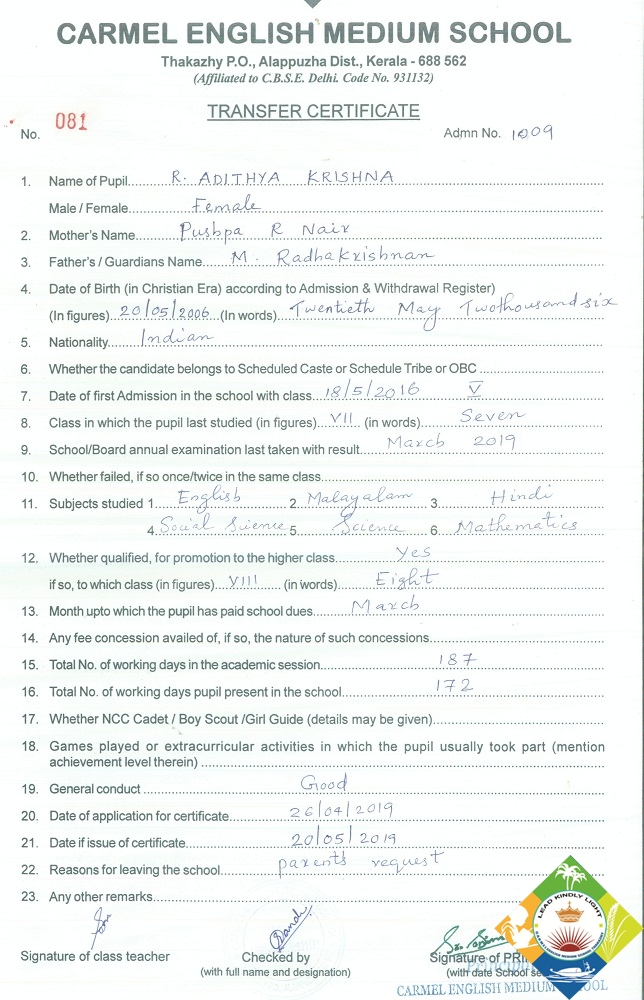 CARMEL ENGLISH MEDIUM SCHOOL
Thakazhy P.O., Alappuzha Dist., Kerala - 688 562
(Affiliated to C.B.S.E. Delhi. Code No. 931132)
TRANSFER CERTIFICATE
No. 081 Admn No. 1009
1. Name of Pupil R. ADITHYA KRISHNA
Male / Female Female
2. Mother's Name Pushpa R Nair
3. Father's / Guardians Name M. Radhakrishnan
4. Date of Birth (in Christian Era) according to Admission & Withdrawal Register)
(In figures) 20/05/2006 (In words) Twentieth May Twothousand six
5. Nationality Indian
6. Whether the candidate belongs to Scheduled Caste or Schedule Tribe or OBC
7. Date of first Admission in the school with class 18/5/2016 V
8. Class in which the pupil last studied (in figures) VII (in words) Seven
9. School/Board annual examination last taken with result March 2019
10. Whether failed, if so once/twice in the same class
11. Subjects studied 1. English 2. Malayalam 3. Hindi
4. Social Science 5 Science 6. Mathematics
12. Whether qualified, for promotion to the higher class Yes
if so, to which class (in figures) VIII (in words) Eight
13. Month upto which the pupil has paid school dues March
14. Any fee concession availed of, if so, the nature of such concessions
15. Total No. of working days in the academic session 187
16. Total No. of working days pupil present in the school 172
17. Whether NCC Cadet / Boy Scout /Girl Guide (details may be given)
18. Games played or extracurricular activities in which the pupil usually took part (mention
achievement level therein)
19. General conduct Good
20. Date of application for certificate 26/04/2019
21. Date if issue of certificate 20/05/2019
22. Reasons for leaving the school parents request
23. Any other remarks
Signature of class teacher Checked by Signature of PRI
(with full name and designation) (with date School se
CARMEL ENGLISH MEDIUM SCHOOL
LEAD KINDLY LIGHT